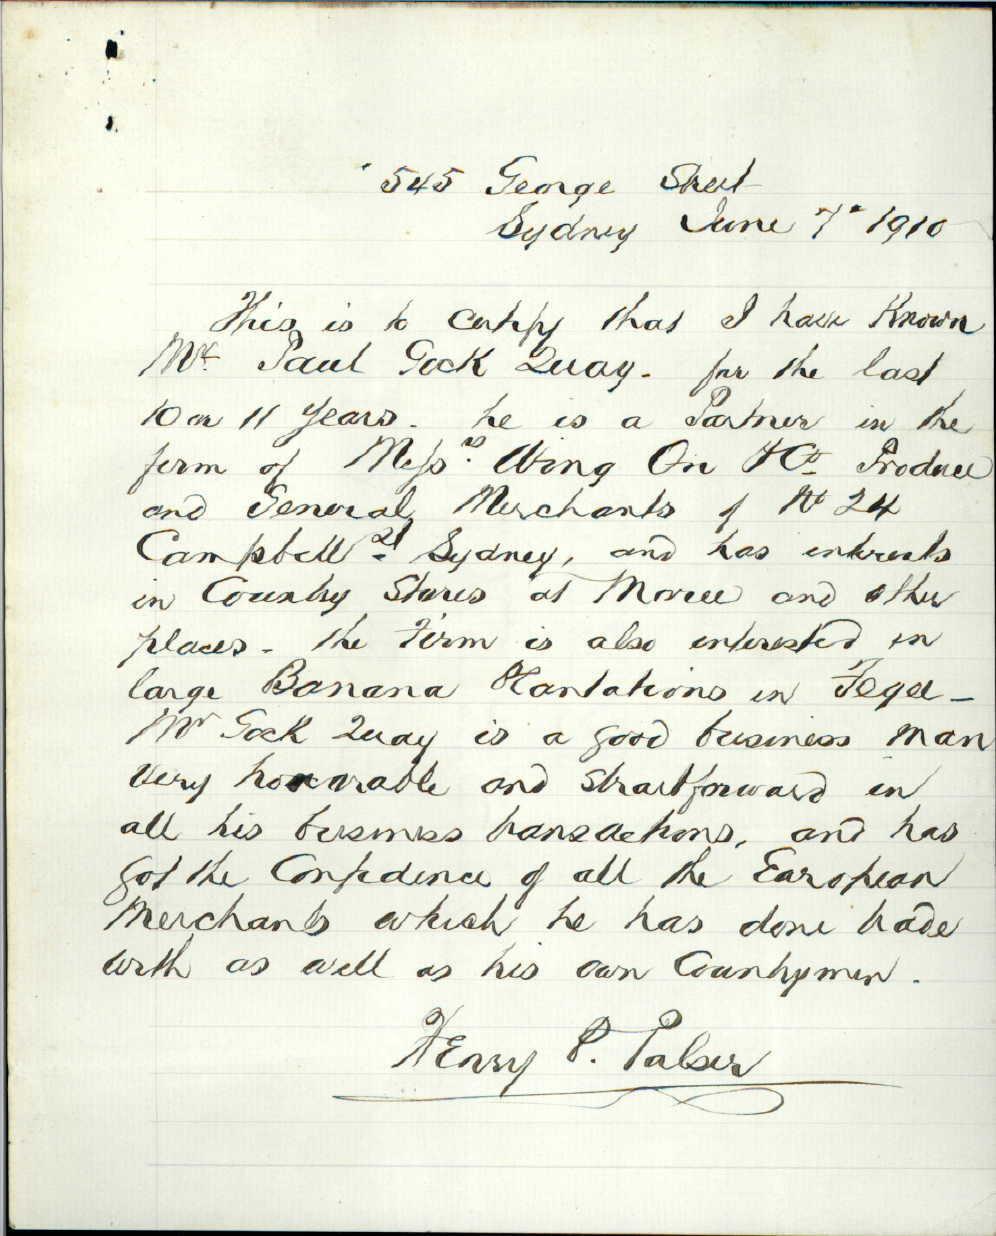 545 George Street
Sydney June 7th 1910
This is to certify that I have Known
Mr. Paul Gock Quay. for the last
10 or 11 years. he is a Partner in the
firm of Messrs. Wing On & Co Produce
and General Merchants of No 24
Campbell St Sydney, and has interests
in Country Stores at Moree and other
places - the Firm is also interested in
large Banana Plantations in Fegee -
Mr Gock Quay is a good business man
very honorable and straitforward in
all his business transactions, and has
got the Confidence of all the European
Merchants which he has done trade
with as well as his own Countrymen.
Henry P. Palser